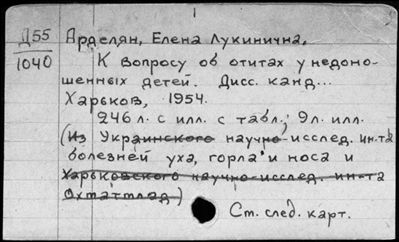 1
Д55 Арделян, Елена Лукинична,
1040 К вопросу об отитах у недоно-
шенных детей. Дисс. канд...
Харьков, 1954.
246 л. с илл. с табл.; 9 л. илл.
(Из Украинского научно-исслед. ин-та
болезней уха, горла и носа и
Харьковского научно-исслед. ин-та
Охматмлад)
См. след. карт.